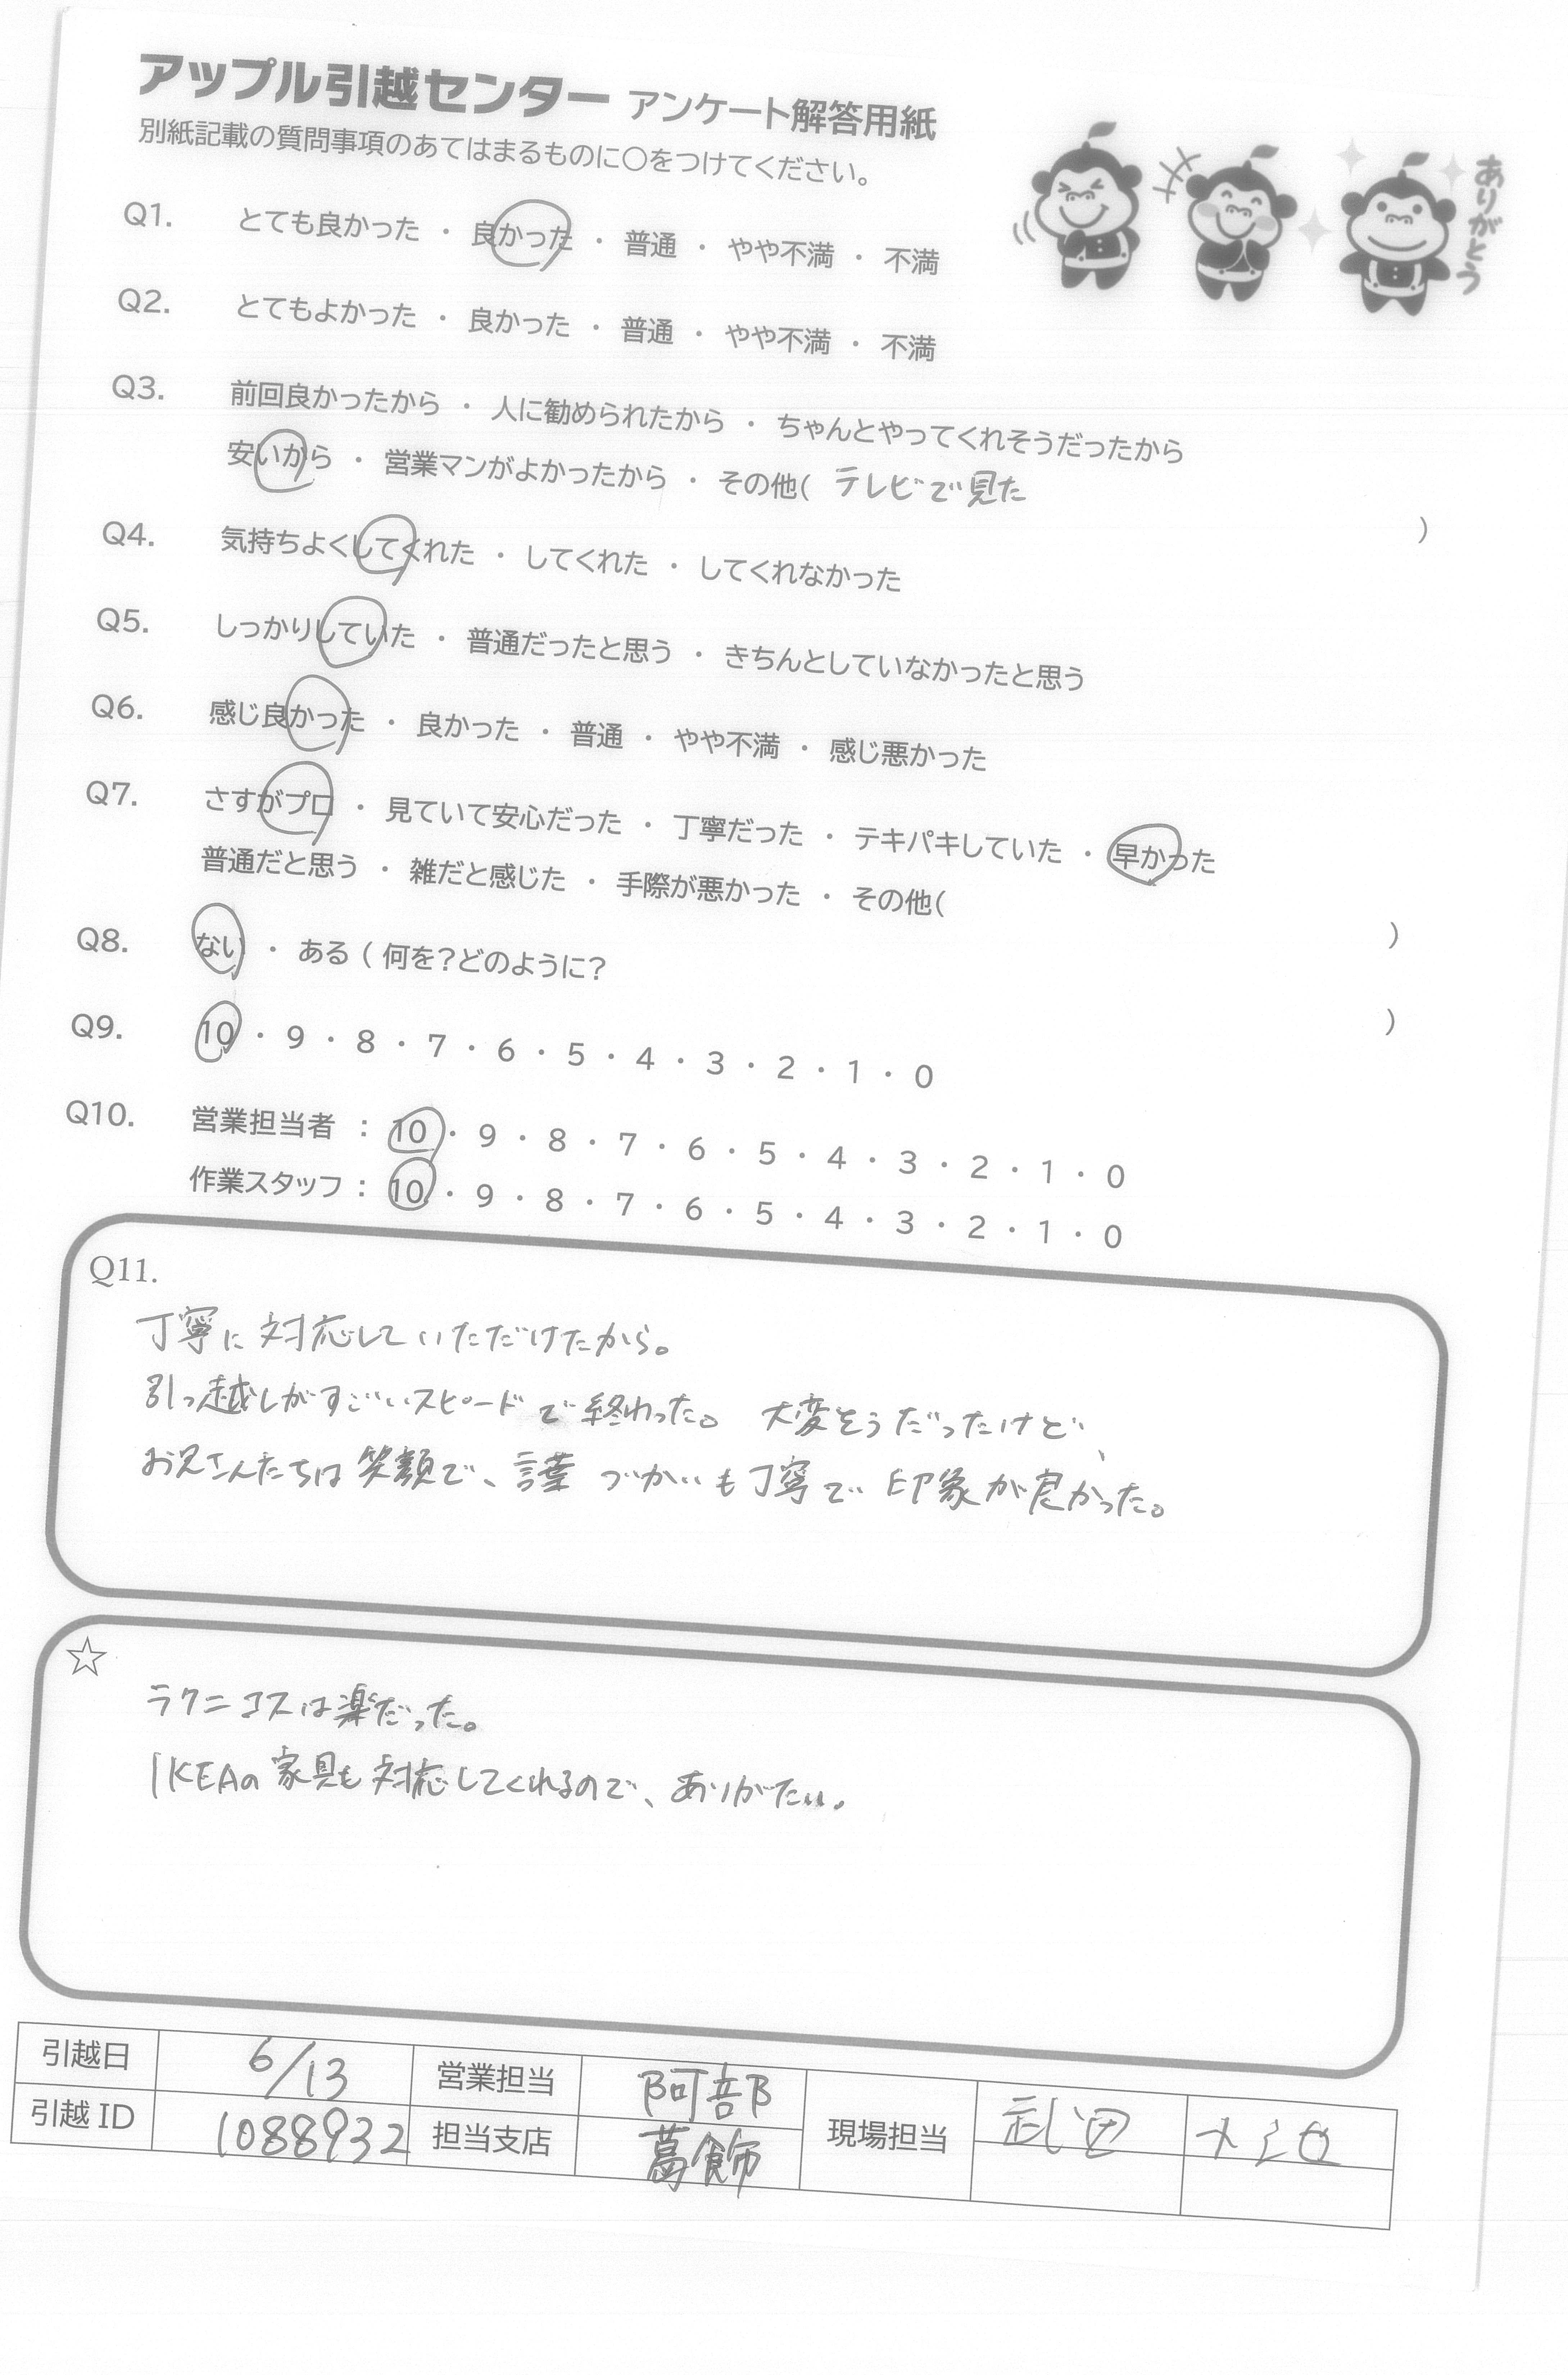 アップル引越センター アンケート解答用紙
別紙記載の質問事項のあてはまるものに〇をつけてください。
ありがとう
Q1. とても良かった ・ 良かった ・ 普通 ・ やや不満 ・ 不満
Q2. とてもよかった ・ 良かった ・ 普通 ・ やや不満 ・ 不満
Q3. 前回良かったから ・ 人に勧められたから ・ ちゃんとやってくれそうだったから
安いから ・ 営業マンがよかったから ・ その他( テレビで見た )
Q4. 気持ちよくしてくれた ・ してくれた ・ してくれなかった
Q5. しっかりしていた ・ 普通だったと思う ・ きちんとしていなかったと思う
Q6. 感じ良かった ・ 良かった ・ 普通 ・ やや不満 ・ 感じ悪かった
Q7. さすがプロ ・ 見ていて安心だった ・ 丁寧だった ・ テキパキしていた ・ 早かった
普通だと思う ・ 雑だと感じた ・ 手際が悪かった ・ その他( )
Q8. ない ・ ある ( 何を?どのように? )
Q9. 10 ・ 9 ・ 8 ・ 7 ・ 6 ・ 5 ・ 4 ・ 3 ・ 2 ・ 1 ・ 0
Q10. 営業担当者 : 10 ・ 9 ・ 8 ・ 7 ・ 6 ・ 5 ・ 4 ・ 3 ・ 2 ・ 1 ・ 0
作業スタッフ : 10 ・ 9 ・ 8 ・ 7 ・ 6 ・ 5 ・ 4 ・ 3 ・ 2 ・ 1 ・ 0
Q11.
丁寧に対応していただけたから。
引っ越しがすごいスピードで終わった。 大変そうだったけど、
お兄さんたちは笑顔で、言葉づかいも丁寧で印象が良かった。
☆
ラクニコスは楽だった。
IKEAの家具も対応してくれるので、ありがたい。
引越日 6/13 営業担当 阿部 現場担当 武田
引越ID 1088932 担当支店 葛飾